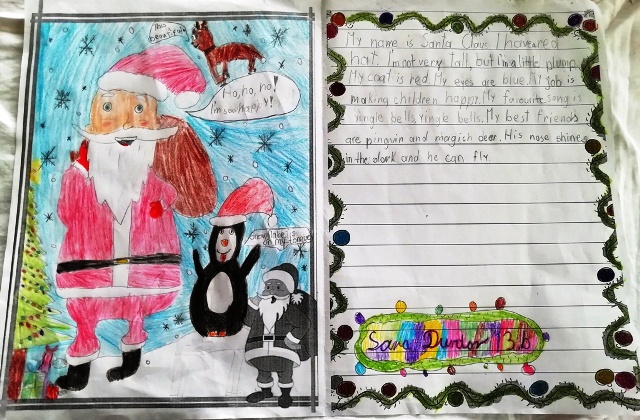 Ho, ho, ho!
I'm so happy!
Snowflake is
on my tongue
My name is Santa Claus. I have a red
hat. I'm not very tall, but I'm a little plump.
My coat is red. My eyes are blue. My job is
making children happy. My favourite song is
Yingle bells, Yingle bells. My best friends
are penguin and magich deer. His nose shines
in the dark and he can fly.
Sara Dundur 3.b